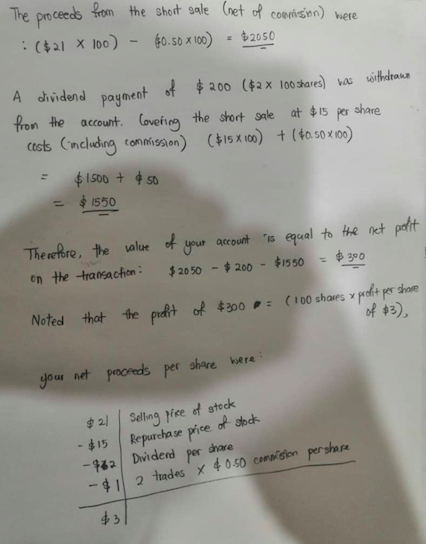 The proceeds from the short sale (net of commission) were
: ($21 x 100) - ($0.50 x 100) = $2050
A dividend payment of $200 ($2 x 100 shares) was withdrawn
from the account. Covering the short sale at $15 per share
costs (including commission) ($15 x 100) + ($0.50 x 100)
= $1500 + $50
= $1550
Therefore, the value of your account is equal to the net profit
on the transaction: $2050 - $200 - $1550 = $300
Noted that the profit of $300 = (100 shares x profit per share
of $3),
your net proceeds per share were:
$21 Selling price of stock
- $15 Repurchase price of stock
- $2 Dividend per share
- $1 2 trades x $0.50 commission per share
$3